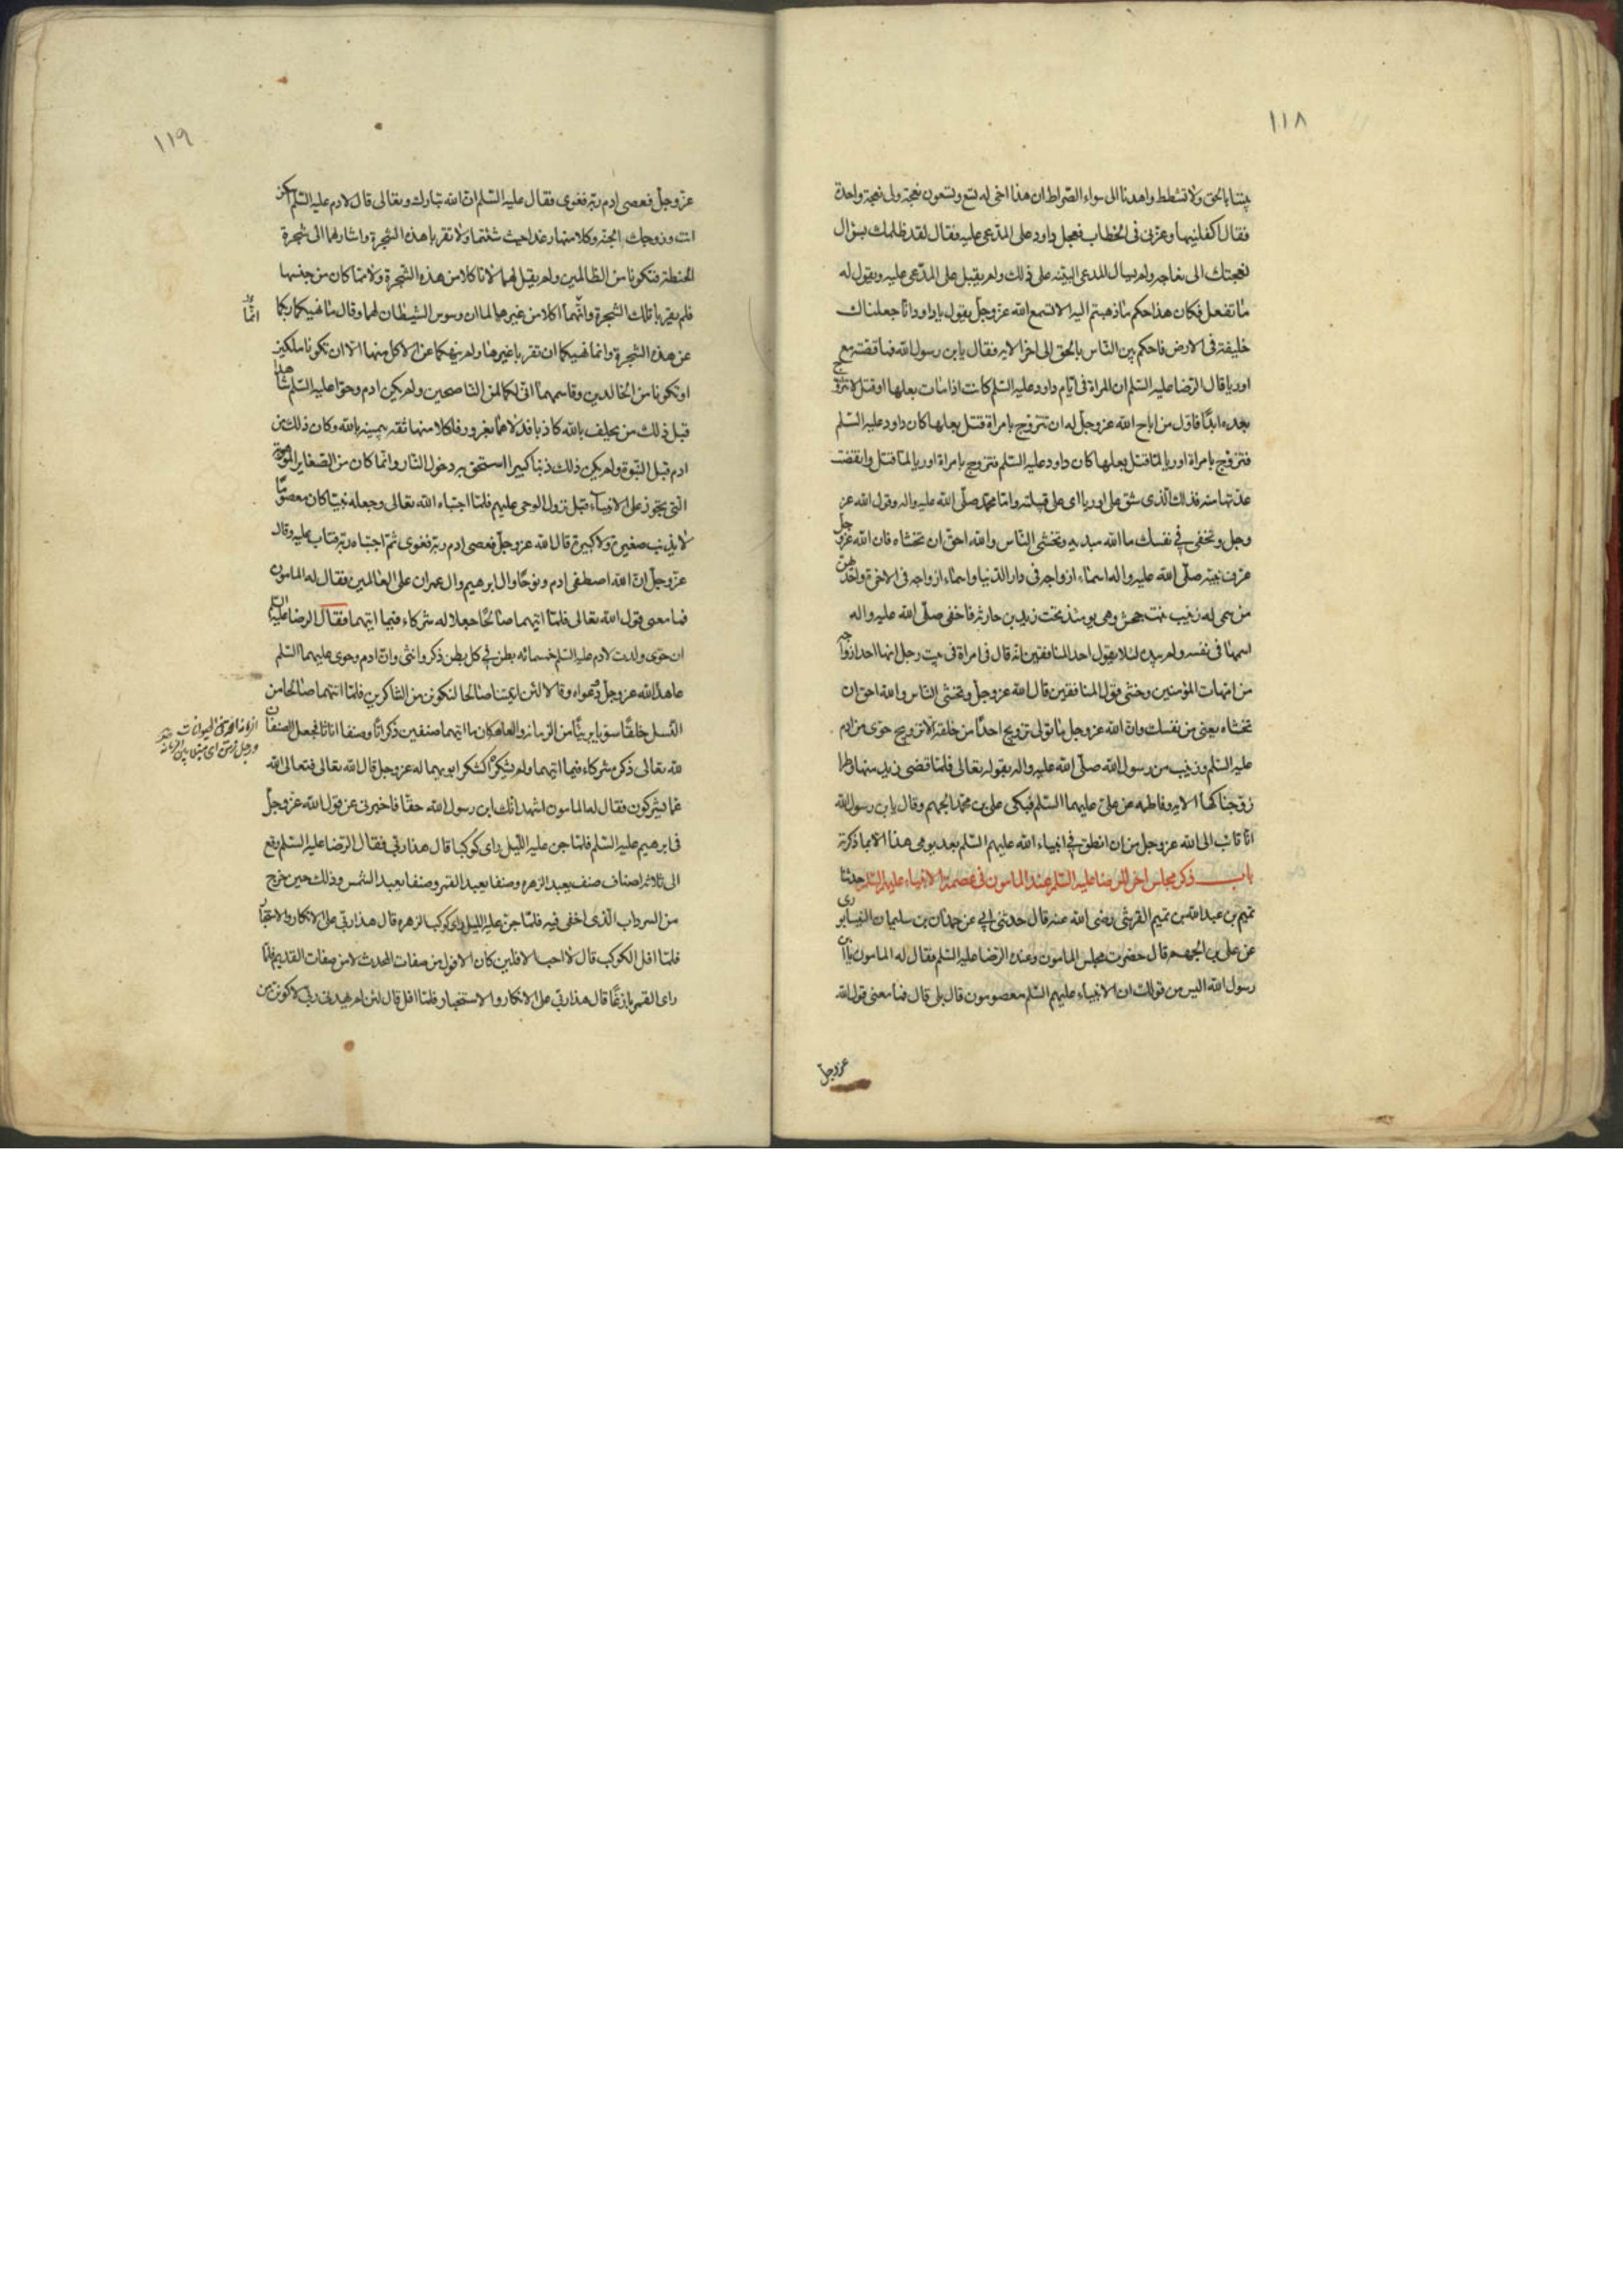 ١١٨
بيننا بالحق ولا تشطط واهدنا الى سواء الصراط ان هذا اخى له تسع وتسعون نعجة ولى نعجة واحدة
فقال اكفلنيها وعزنى فى الخطاب فعجل داود على المدعى عليه فقال لقد ظلمك بسؤال
نعجتك الى نعاجه ولم يسال المدعى البينه على ذلك ولم يقبل على المدعى عليه ويقول له
ما تفعل فكان هذا حكم ما ذهبتم اليه الا تسمع الله عز وجل يقول يا داود انا جعلناك
خليفة فى الارض فاحكم بين الناس بالحق الى اخر الايه فقال يابن رسول الله فما قصته مع
اوريا قال الرضا عليه السلم ان المراة فى ايام داود عليه السلم كانت اذا مات بعلها او قتل لا تتزوج
بعده ابدا فاول من اباح الله عز وجل له ان تتزوج بامراة قتل بعلها كان داود عليه السلم
فتزوج بامراة اوريا لما قتل بعلها كان داود عليه السلم فتزوج بامراة اوريا لما قتل وانقضت
عدتها منه فذلك الذى شق على اوريا اى على قبيلته واما محمد صلى الله عليه واله وقول الله عز
وجل وتخفى فى نفسك ما الله مبديه وتخشى الناس والله احق ان تخشاه فان الله عز وجل
عرف نبيه صلى الله عليه واله اسماء ازواجه فى دار الدنيا واسماء ازواجه فى الاخرة واحدهن
من سمى له زينب بنت جحش وهى يومئذ تحت زيد بن حارثه فاخفى صلى الله عليه واله
اسمها فى نفسه ولم يبده لئلا يقول احد المنافقين انه قال فى امراة فى بيت رجل انها احد ازواجه
من امهات المؤمنين وخشى قول المنافقين قال الله عز وجل وتخشى الناس والله احق ان
تخشاه يعنى من نفسك وان الله عز وجل ما تولى تزويج احدا من خلقه الا تزويج حوى من ادم
عليه السلم وزينب من رسول الله صلى الله عليه واله بقوله تعالى فلما قضى زيد منها وطرا
زوجناكها الايه وفاطمه من على عليهما السلم فبكى على بن محمد الجهم وقال يابن رسول الله
انا تائب الى الله عز وجل من ان انطق فى انبياء الله عليهم السلم بعد يومى هذا الا بما ذكرته
باب ذكر مجلس اخر للرضا عليه السلم عند المامون فى عصمة الانبياء عليهم السلم حدثنا
تميم بن عبد الله بن تميم القرشى رضى الله عنه قال حدثنى ابى عن حمدان بن سليمان النيسابورى
عن على بن الجهم قال حضرت مجلس المامون وعنده الرضا عليه السلم فقال له المامون يا ابن
رسول الله اليس من قولك ان الانبياء عليهم السلم معصومون قال بلى قال فما معنى قول الله
عز وجل
١١٩
عز وجل فعصى ادم ربه فغوى فقال عليه السلم ان الله تبارك وتعالى قال لادم عليه السلم اسكن
انت وزوجك الجنه وكلا منها رغدا حيث شئتما ولا تقربا هذه الشجرة واشار لهما الى شجرة
الحنطة فتكونا من الظالمين ولم يقل لهما لا تاكلا من هذه الشجرة ولا مما كان من جنسها
فلم يقربا تلك الشجرة وانما اكلا من غيرهما لما ان وسوس الشيطان لهما وقال ما نهيكما ربكما
انما
عن هذه الشجرة وانما نهيكما ان تقربا غيرها ولم ينهكما عن الاكل منها الا ان تكونا ملكين
او تكونا من الخالدين وقاسمهما انى لكما لمن الناصحين ولم يكن ادم وحوا عليه السلم شاهدا
قبل ذلك من يحلف بالله كاذبا فدلاهما بغرور فاكلا منها ثقه بيمينه بالله وكان ذلك من
ادم قبل النبوة ولم يكن ذلك ذنبا كبيرا استحق به دخول النار وانما كان من الصغاير الموهوبة
التى تجوز على الانبياء قبل نزول الوحى عليهم فلما اجتباه الله تعالى وجعله نبيا كان معصوما
لا يذنب صغيرة ولا كبيرة قال الله عز وجل فعصى ادم ربه فغوى ثم اجتباه ربه فتاب عليه وقال
عز وجل ان الله اصطفى ادم ونوحا وال ابرهيم وال عمران على العالمين فقال له المامون
فما معنى قول الله تعالى فلما اتيهما صالحا جعلا له شركاء فيما اتيهما فقال الرضا عليه السلم
ان حوى ولدت لادم عليه السلم خمسمائه بطن فى كل بطن ذكر وانثى وان ادم وحوى عليهما السلم
عاهدا الله عز وجل ودعواه وقالا لئن اتيتنا صالحا لنكونن من الشاكرين فلما اتيهما صالحا من
النسل خلقا سويا بريئا من الزمانه والعاهه كان ما اتيهما صنفين ذكرانا وصنفا اناثا فجعل الصنفان
لله تعالى ذكره شركاء فيما اتيهما ولم يشكراه كشكر ابويهما له عز وجل قال الله تعالى فتعالى الله
عما يشركون فقال له المامون اشهد انك ابن رسول الله حقا فاخبرنى عن قول الله عز وجل
فى ابرهيم عليه السلم فلما جن عليه الليل راى كوكبا قال هذا ربى فقال الرضا عليه السلم وقع
الى ثلاثه اصناف صنف يعبد الزهره وصنفا يعبد القمر وصنفا يعبد الشمس وذلك حين خرج
من السرداب الذى اخفى فيه فلما جن عليه الليل راى كوكب الزهره قال هذا ربى على الانكار والاستخبار
فلما افل الكوكب قال لا احب الافلين كان الافول من صفات المحدث لا من صفات القديم فلما
راى القمر بازغا قال هذا ربى على الانكار والاستخبار فلما افل قال لئن لم يهدنى ربى لاكونن من